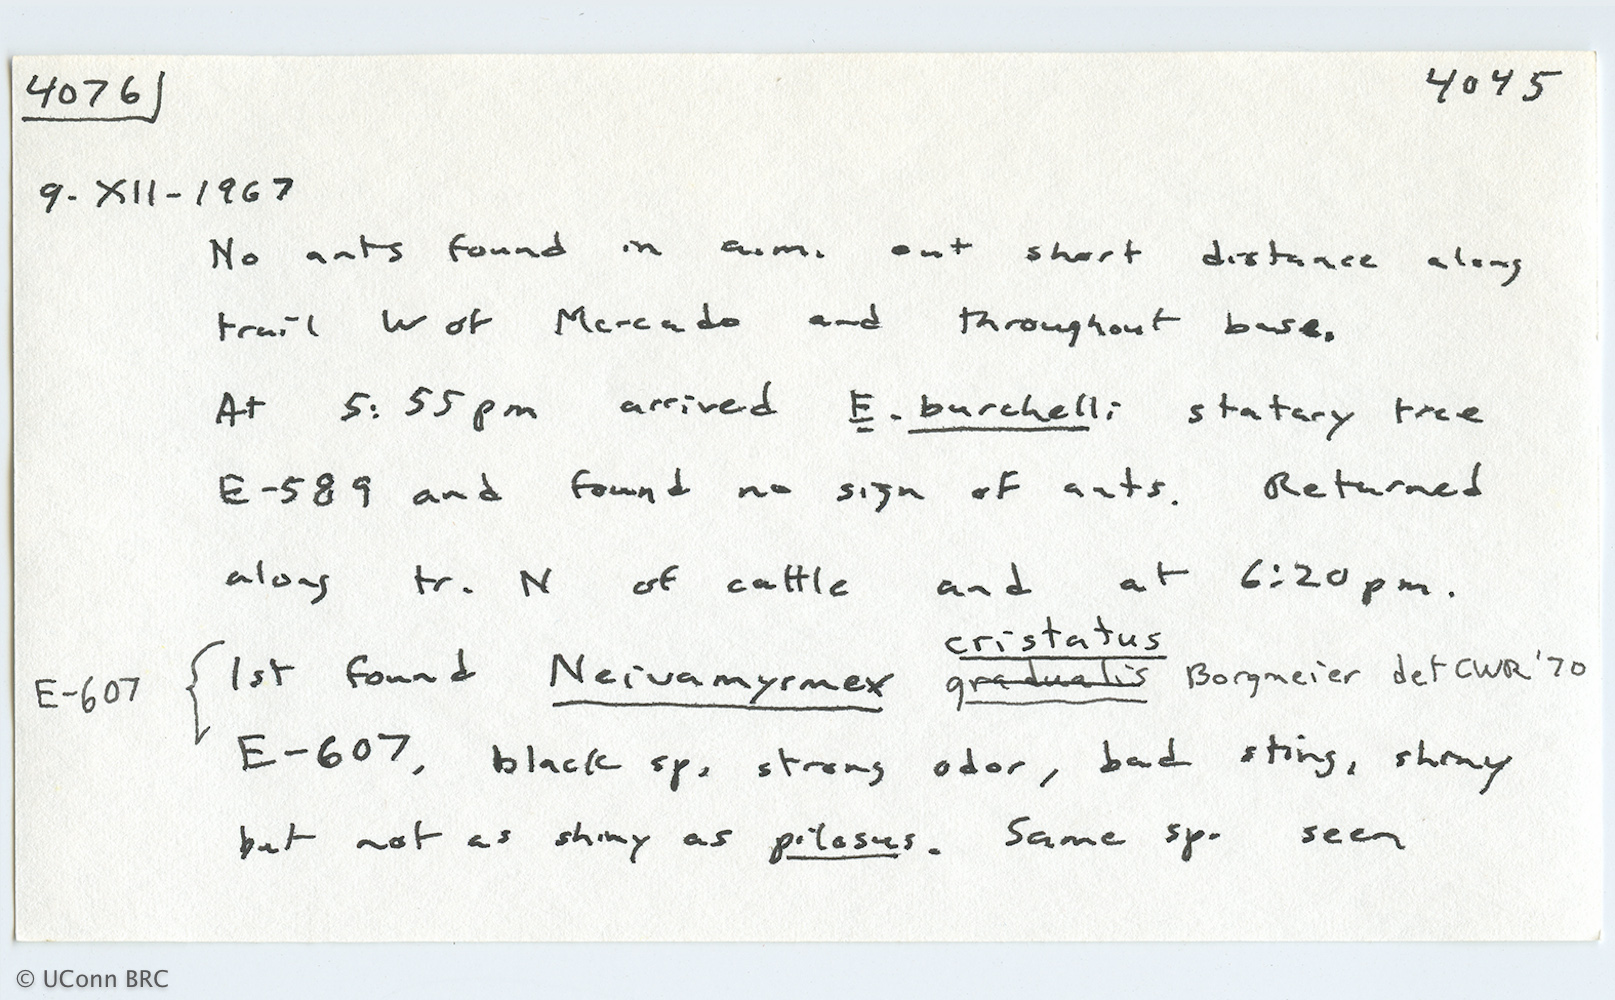 4076 4045
9-XII-1967
No ants found in a.m. out short distance along
trail W of Mercado and throughout base.
At 5:55pm arrived E. burchelli statary tree
E-589 and found no sign of ants. Returned
along tr. N of cattle and at 6:20pm.
cristatus
E-607 { 1st found Neivamyrmex gradualis Borgmeier det CWR '70
E-607, black sp. strong odor, bad sting, shiny
but not as shiny as pilosus. Same sp. seen
© UConn BRC